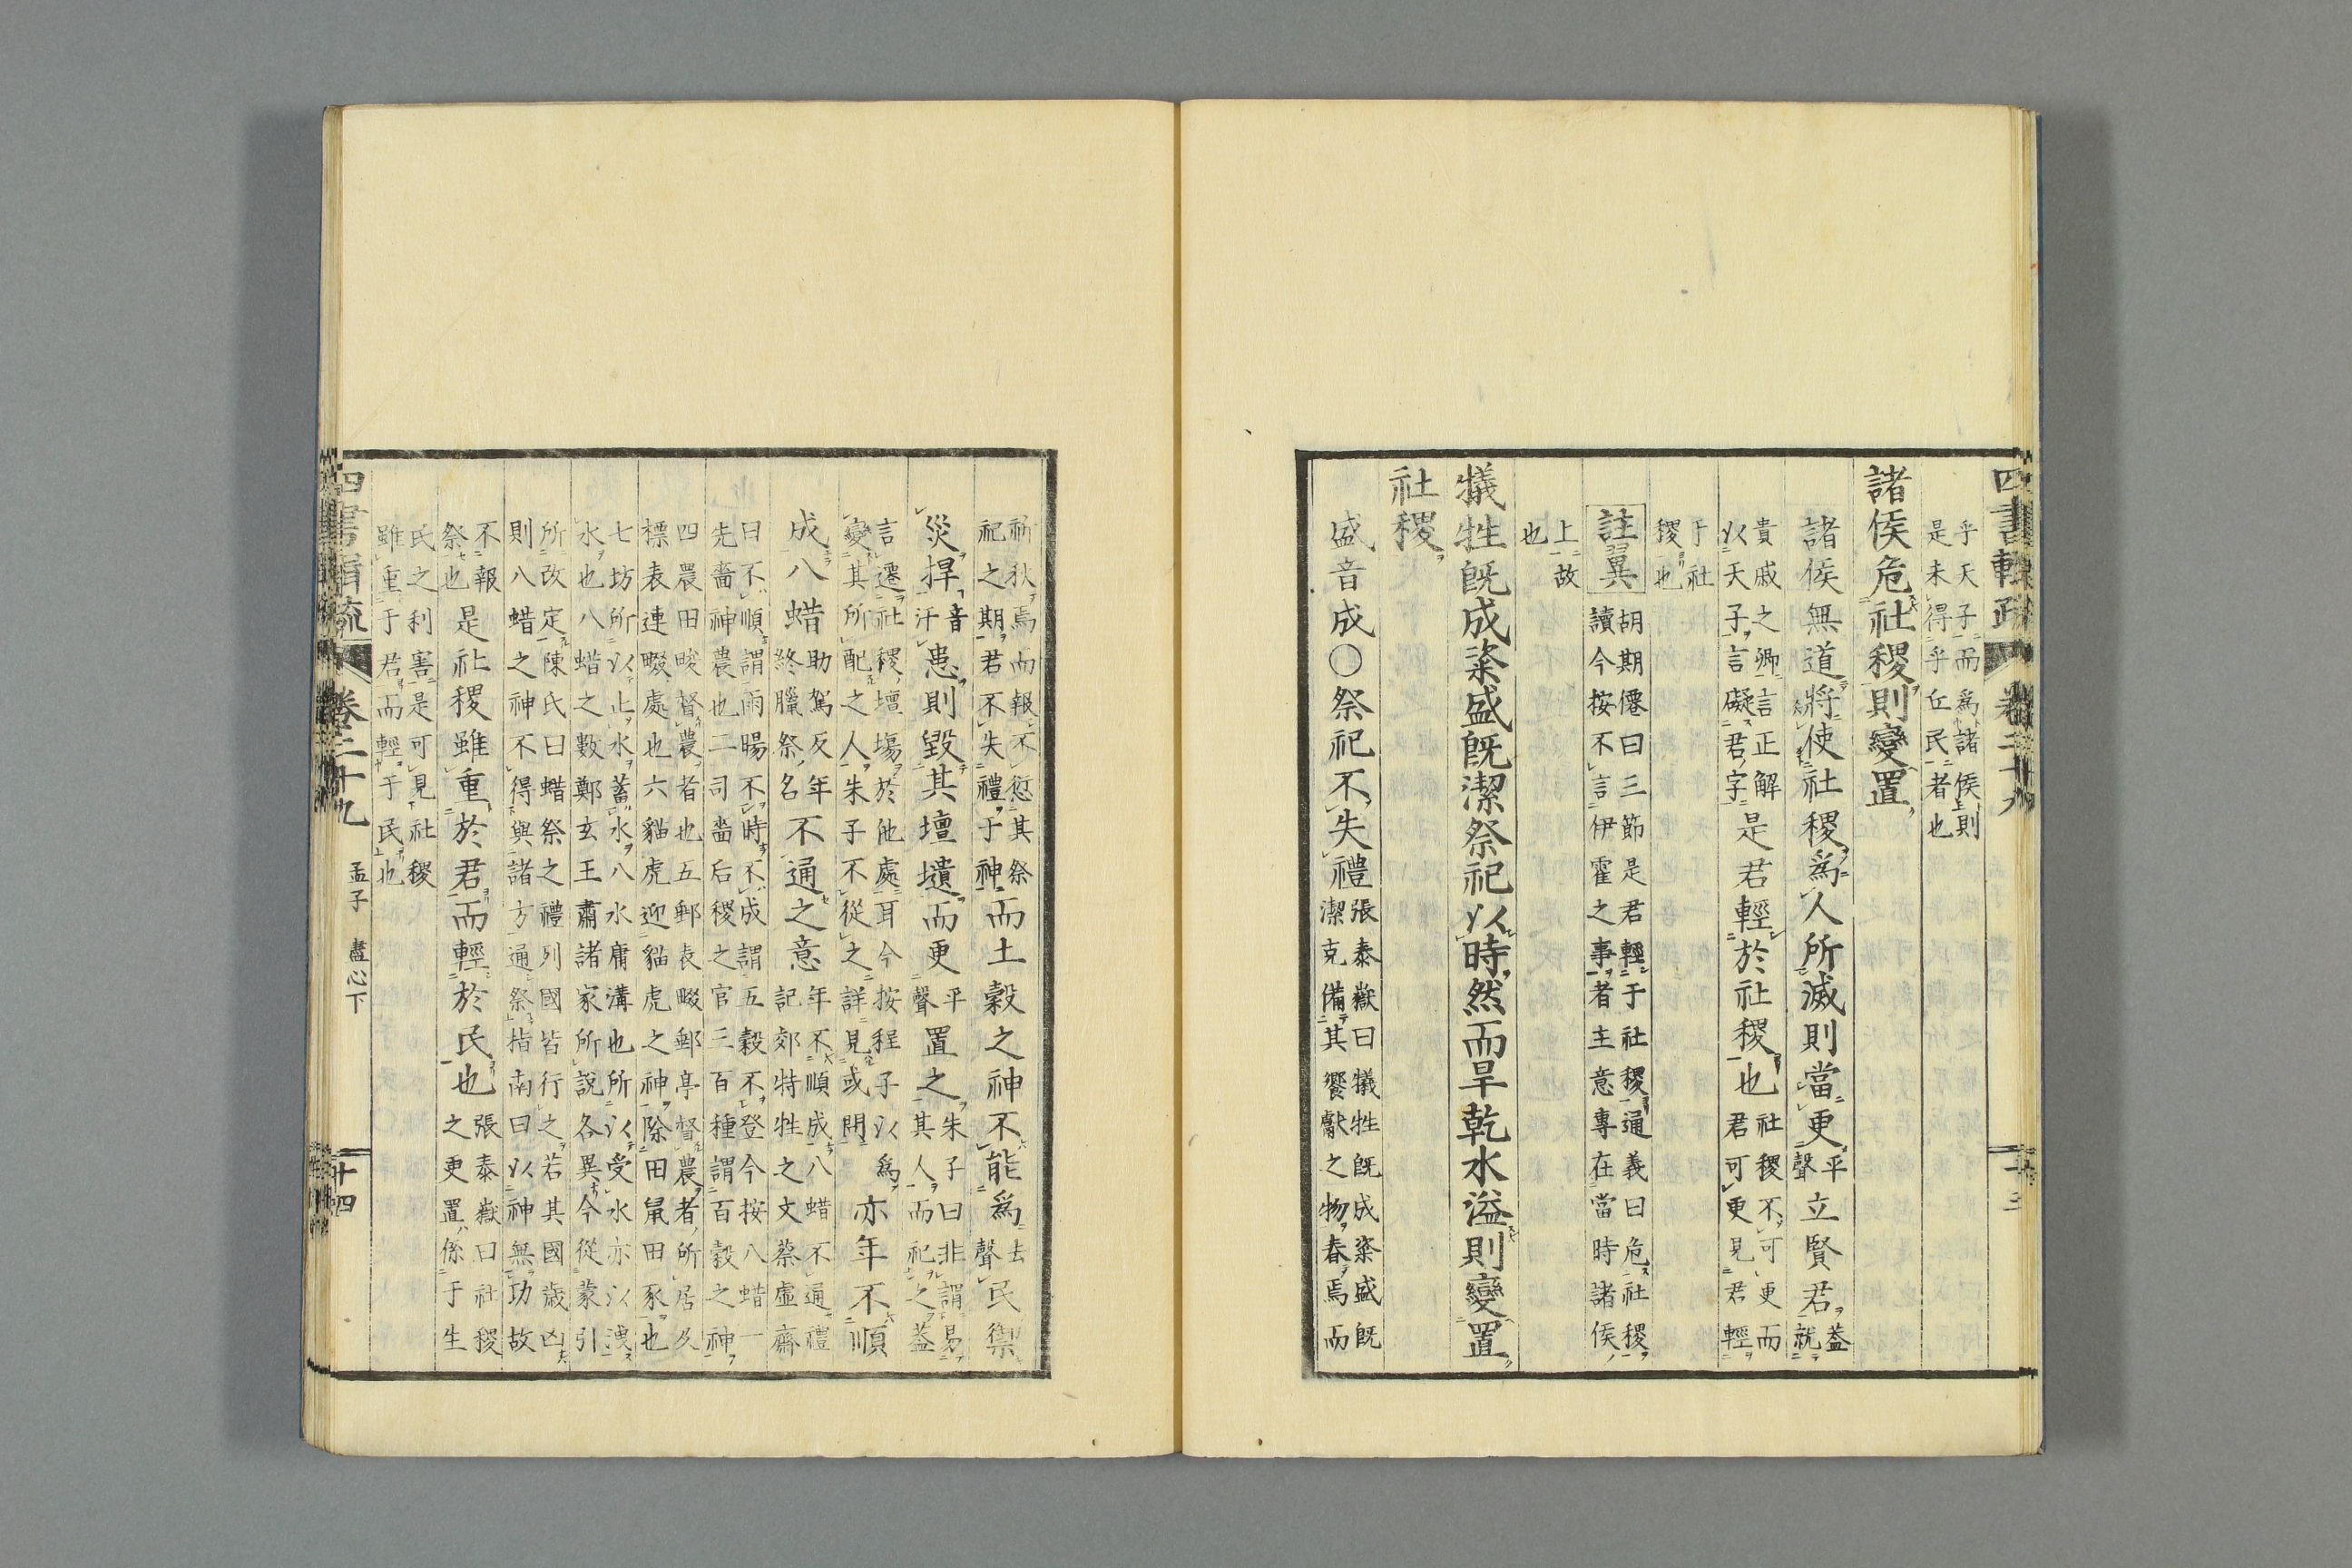 四書輯疏 卷二十九
乎天子而爲諸侯則
是未得乎丘民者也
諸侯危社稷則變置
諸侯無道將使社稷爲人所滅則當更平聲立賢君蓋就
貴戚之卿言正解
以天子言礙君字
是君輕於社稷也
社稷不可更而
君可更見君輕
于社
稷也
註翼
胡期僊曰三節是君輕于社稷通義曰危社稷
讀今按不言伊霍之事者主意專在當時諸侯
上故
也
犧牲既成粢盛既潔祭祀以時然而旱乾水溢則變置
社稷
盛音成○祭祀不失禮
張泰嶽曰犧牲既成粢盛既
潔克備其饗獻之物春焉而
祈秋焉而報不愆其祭
祀之期君不失禮于神
而土穀之神不能爲去聲民禦
災捍音汗患則毀其壇壝而更平聲置之
朱子曰非謂易
其人而祀之蓋
言遷社稷壇場於他處耳今按程子以爲
變其所配之人朱子不從之詳見或問
亦年不順
成八蜡
助駕反年
終臘祭名
不通之意
年不順成八蜡不通禮
記郊特牲之文蔡虛齋
曰不順謂雨暘不時不成謂五穀不登今按八蜡一
先嗇神農也二司嗇后稷之官三百種謂百穀之神
四農田畯督農者也五郵表畷郵亭督農者所居久
標表連畷處也六貓虎迎貓虎之神除田鼠田豕也
七坊所以止水蓄水八水庸溝也所以受水亦以洩
水也八蜡之數鄭玄王肅諸家所說各異今從蒙引
所改定陳氏曰蜡祭之禮列國皆行之若其國歲凶
則八蜡之神不得與諸方通祭指南曰以神無功故
不報
祭也
是社稷雖重於君而輕於民也
張泰嶽曰社稷
之更置係于生
民之利害是可見社稷
雖重于君而輕于民也
四書輯疏 卷二十九 孟子 盡心下 十四